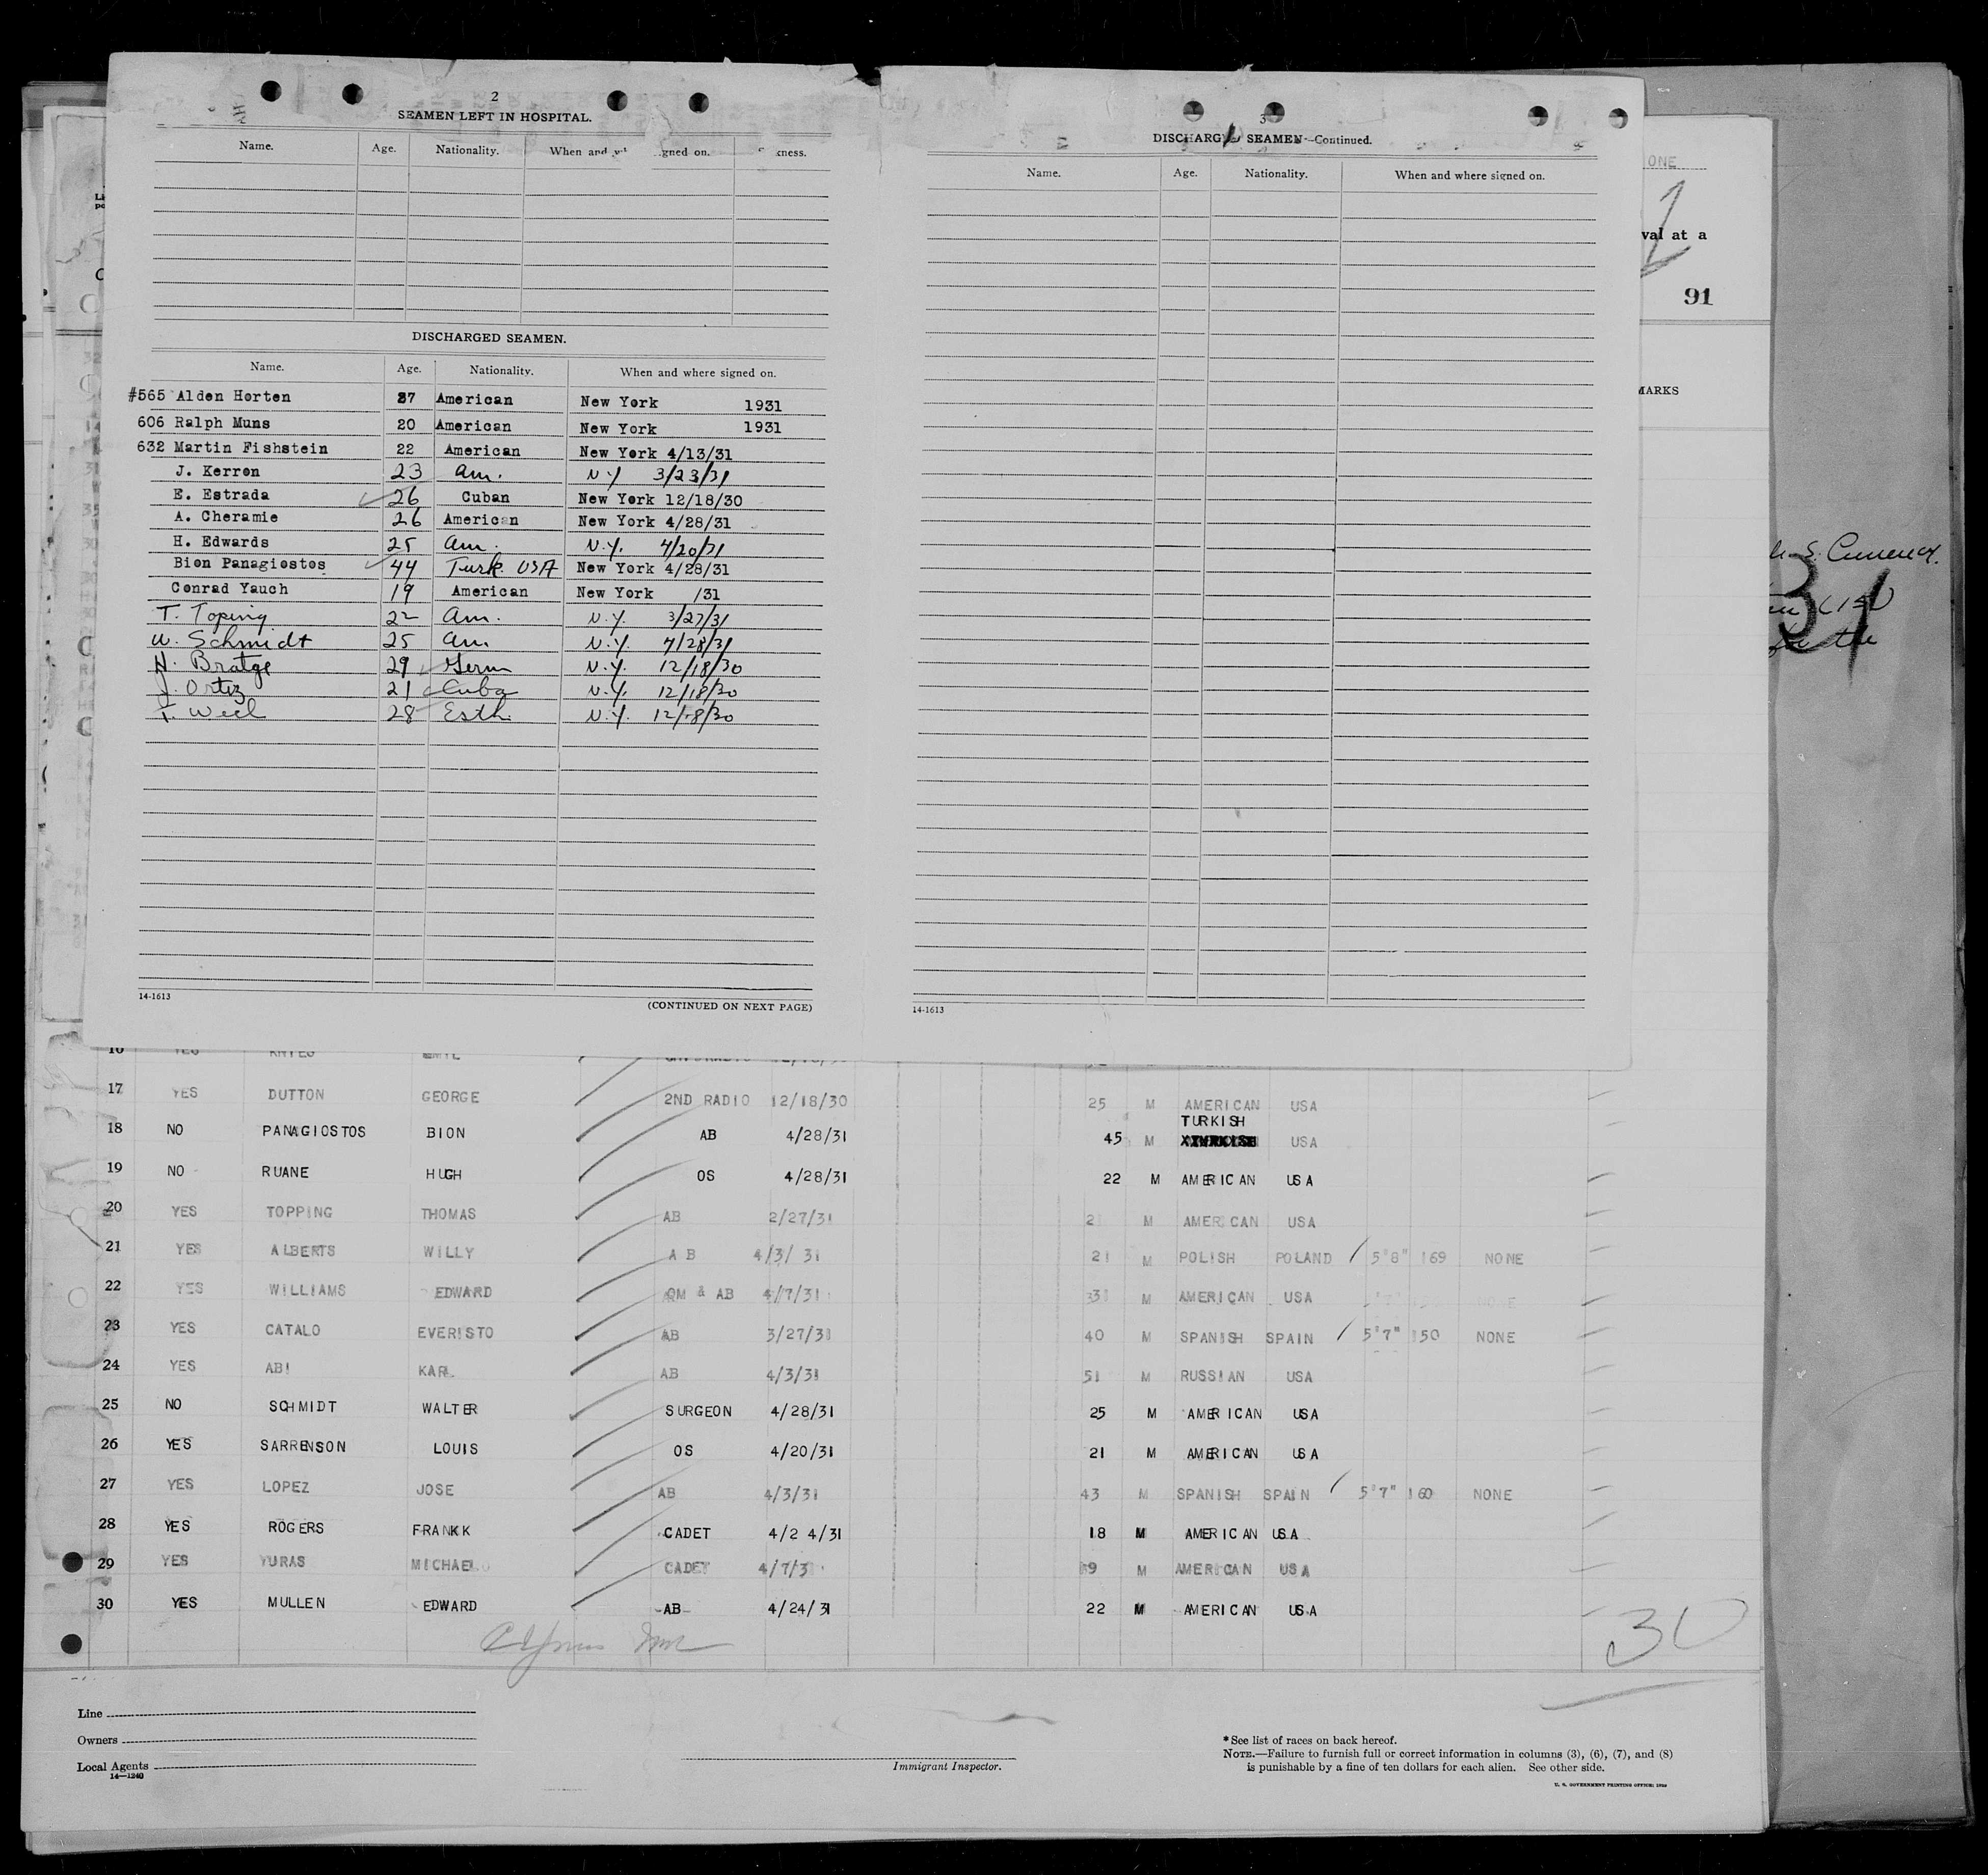 2
SEAMEN LEFT IN HOSPITAL.
Name. Age. Nationality. When and gned on. kness.
DISCHARGED SEAMEN.
Name. Age. Nationality. When and where signed on.
#565 Alden Horten 37 American New York 1931
606 Ralph Muns 20 American New York 1931
632 Martin Fishstein 22 American New York 4/13/31
J. Kerron 23 Am. N.Y 3/23/31
E. Estrada 26 Cuban New York 12/18/30
A. Cheramie 26 American New York 4/28/31
H. Edwards 25 Am. N.Y. 4/20/31
Bion Panagiostos 44 Turk USA New York 4/28/31
Conrad Yauch 19 American New York /31
T. Toping 22 Am. N.Y. 3/27/31
W. Schmidt 25 Am N.Y. 4/28/31
H. Bratge 29 Germ N.Y. 12/18/30
J. Ortiz 21 Cuba N.Y. 12/18/30
28 Esth. N.Y. 12/18/30
14-1613 (CONTINUED ON NEXT PAGE)
3
DISCHARG SEAMEN—Continued.
Name. Age. Nationality. When and where signed on.
14-1613
ONE
val at a
91
MARKS
S. Currency.
31
17 YES DUTTON GEORGE 2ND RADIO 12/18/30 25 M AMERICAN USA
TURKISH
18 NO PANAGIOSTOS BION AB 4/28/31 45 M USA
19 NO RUANE HUGH OS 4/28/31 22 M AMERICAN USA
20 YES TOPPING THOMAS AB 2/27/31 2 M AMERICAN USA
21 YES ALBERTS WILLY A B 4/3/ 31 21 M POLISH POLAND / 5"8" 169 NONE
22 YES WILLIAMS EDWARD QM & AB 4/7/31 33 M AMERICAN USA
23 YES CATALO EVERISTO AB 3/27/31 40 M SPANISH SPAIN / 5"7" 150 NONE
24 YES ABI KARL AB 4/3/31 51 M RUSSIAN USA
25 NO SCHMIDT WALTER SURGEON 4/28/31 25 M AMERICAN USA
26 YES SARRENSON LOUIS OS 4/20/31 21 M AMERICAN USA
27 YES LOPEZ JOSE AB 4/3/31 43 M SPANISH SPAIN / 5"7" 160 NONE
28 YES ROGERS FRANKK CADET 4/2 4/31 18 M AMERICAN USA
29 YES YURAS MICHAEL CADET 4/7/3 19 M AMERICAN USA
30 YES MULLEN EDWARD AB 4/24/31 22 M AMERICAN USA
30
Line
Owners
Local Agents
14—1240
Immigrant Inspector.
*See list of races on back hereof.
NOTE.—Failure to furnish full or correct information in columns (3), (6), (7), and (8)
is punishable by a fine of ten dollars for each alien. See other side.
U. S. GOVERNMENT PRINTING OFFICE: 1929